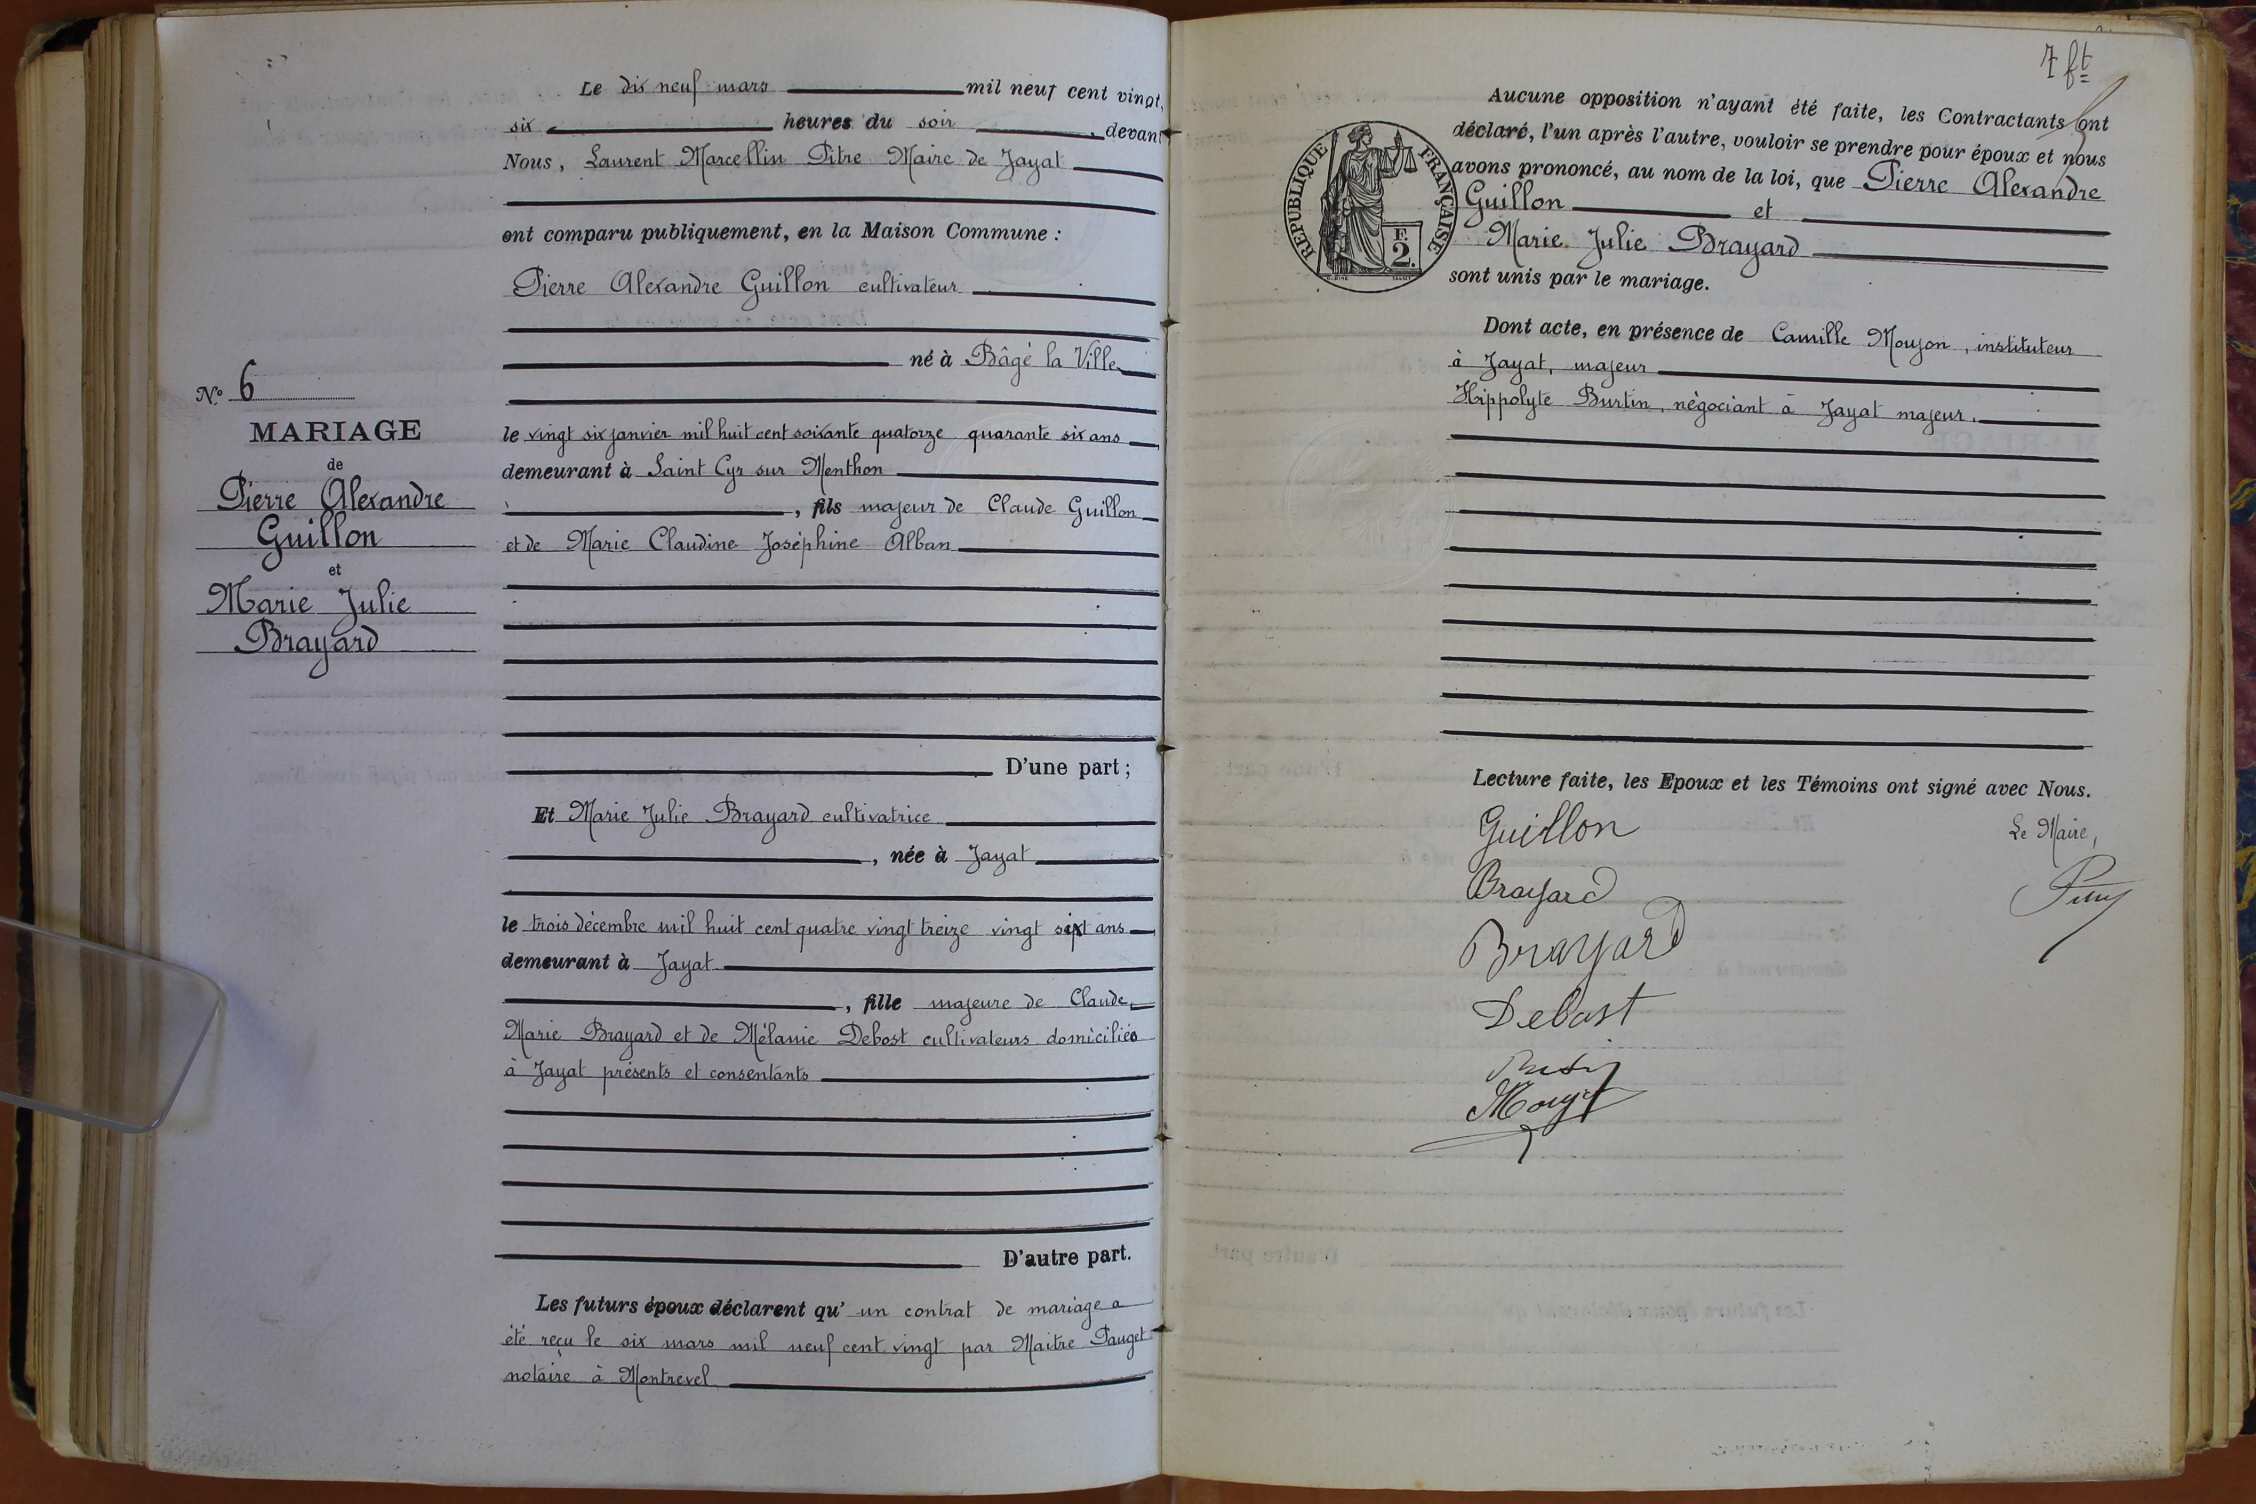 Le dix neuf mars mil neuf cent vingt,
six heures du soir, devant
Nous, Laurent Marcellin Pitre Maire de Jayat
ont comparu publiquement, en la Maison Commune :
Pierre Alexandre Guillon cultivateur
né à Bâgé la Ville
le vingt six janvier mil huit cent soixante quatorze quarante six ans
demeurant à Saint Cyr sur Menthon
, fils majeur de Claude Guillon
et de Marie Claudine Joséphine Alban
D'une part ;
Et Marie Julie Brayard cultivatrice
, née à Jayat
le trois décembre mil huit cent quatre vingt treize vingt six ans
demeurant à Jayat
, fille majeure de Claude
Marie Brayard et de Mélanie Debost cultivateurs domiciliés
à Jayat présents et consentants
D'autre part.
Les futurs époux déclarent qu' un contrat de mariage a
été reçu le six mars mil neuf cent vingt par Maitre Pauget
notaire à Montrevel
No 6
MARIAGE
de
Pierre Alexandre
Guillon
et
Marie Julie
Brayard
7 ft
Aucune opposition n'ayant été faite, les Contractants ont
déclaré, l'un après l'autre, vouloir se prendre pour époux et nous
avons prononcé, au nom de la loi, que Pierre Alexandre
Guillon et
Marie Julie Brayard
sont unis par le mariage.
RÉPUBLIQUE FRANÇAISE
F.
2.
Dont acte, en présence de Camille Moujon, instituteur
à Jayat, majeur
Hippolyte Burtin, négociant à Jayat majeur.
Lecture faite, les Epoux et les Témoins ont signé avec Nous.
Guillon
Le Maire,
Brayard
Brayard
Debost